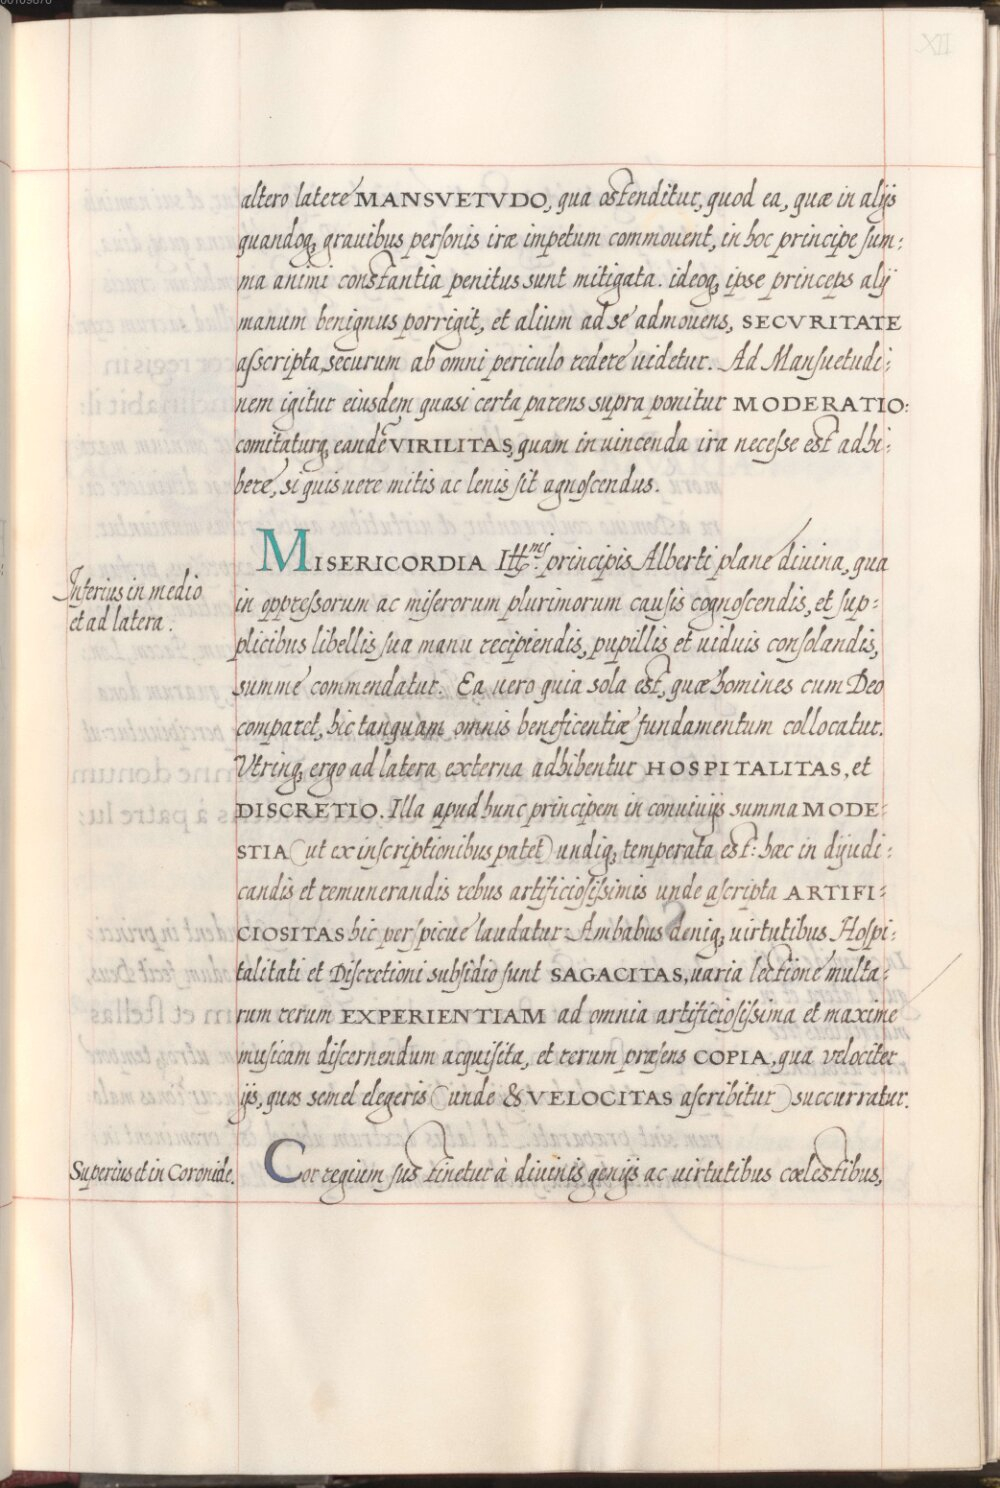 XII
altero latere MANSVETVDO, qua ostenditur, quod ea, quæ in alijs
quandoq; grauibus personis iræ impetum commouent, in hoc principe sum:
ma animi constantia penitus sunt mitigata. ideoq; ipse princeps alij
manum benignus porrigit, et alium ad se admouens, SECVRITATE
asscripta, securum ab omni periculo redere uidetur. Ad Mansuetudi:
nem igitur eiusdem quasi certa parens supra ponitur MODERATIO:
comitaturq; eandē VIRILITAS, quam in uincenda ira necesse est adhi:
bere, si quis uere mitis ac lenis sit agnoscendus.
Inferius in medio
et ad latera.
MISERICORDIA Illmi principis Alberti plane diuina, qua
in oppressorum ac miserorum plurimorum causis cognoscendis, et sup:
plicibus libellis sua manu recipiendis, pupillis et uiduis consolandis,
summe commendatur. Ea uero quia sola est, quæ homines cum Deo
comparet, hic tanquam omnis beneficentiæ fundamentum collocatur.
Vtrinq; ergo ad latera externa adhibentur HOSPITALITAS, et
DISCRETIO. Illa apud hunc principem in conuiuijs summa MODE:
STIA (ut ex inscriptionibus patet) undiq; temperata est: hæc in dijudi:
candis et remunerandis rebus artificiosissimis unde ascripta ARTIFI:
CIOSITAS hic perspicue laudatur: Ambabus deniq; uirtutibus Hospi:
talitati et Discretioni subsidio sunt SAGACITAS, uaria lectione multa:
rum rerum EXPERIENTIAM ad omnia artificiosissima et maxime
musicam discernendum acquisita, et rerum præsens COPIA, qua velociter
ijs, quos semel elegeris (unde & VELOCITAS ascribitur) succurratur.
Superius et in Coronide.
Cor regium sustinetur à diuinis genijs ac uirtutibus cœlestibus,